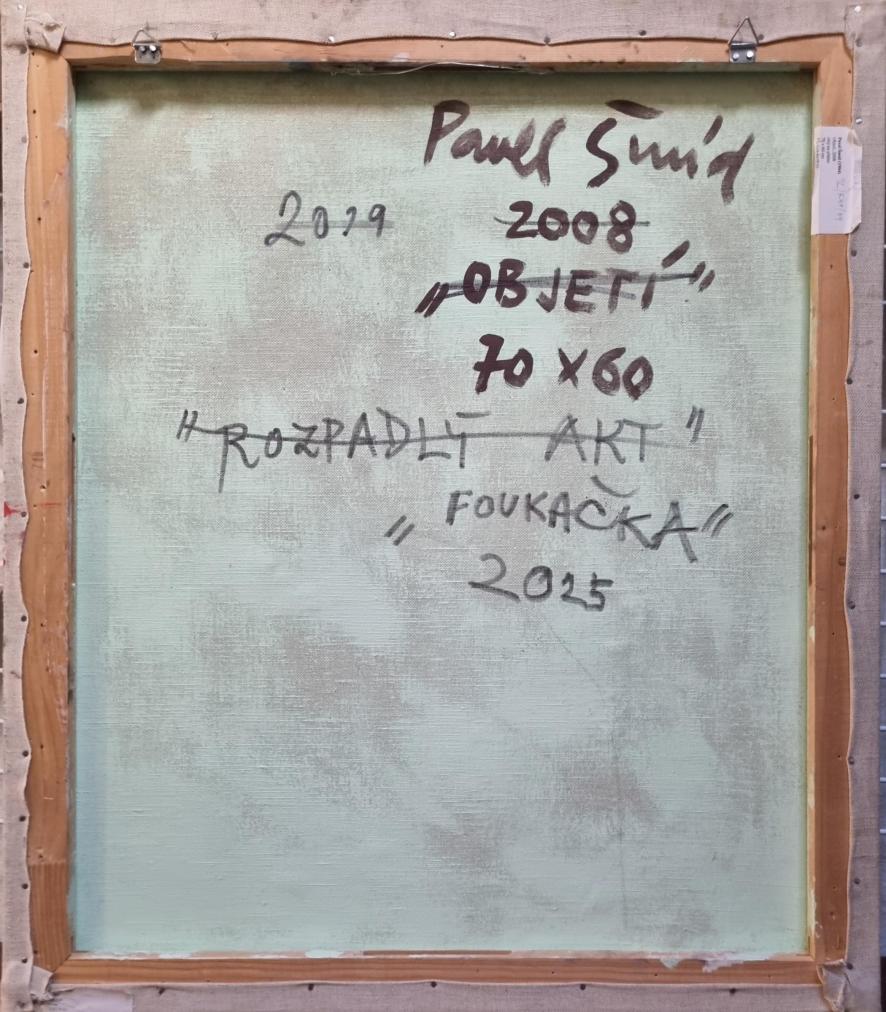 Pavel Šmíd
2019 2008
„OBJETÍ"
70 x 60
"ROZPADLÝ AKT"
„FOUKAČKA"
2025